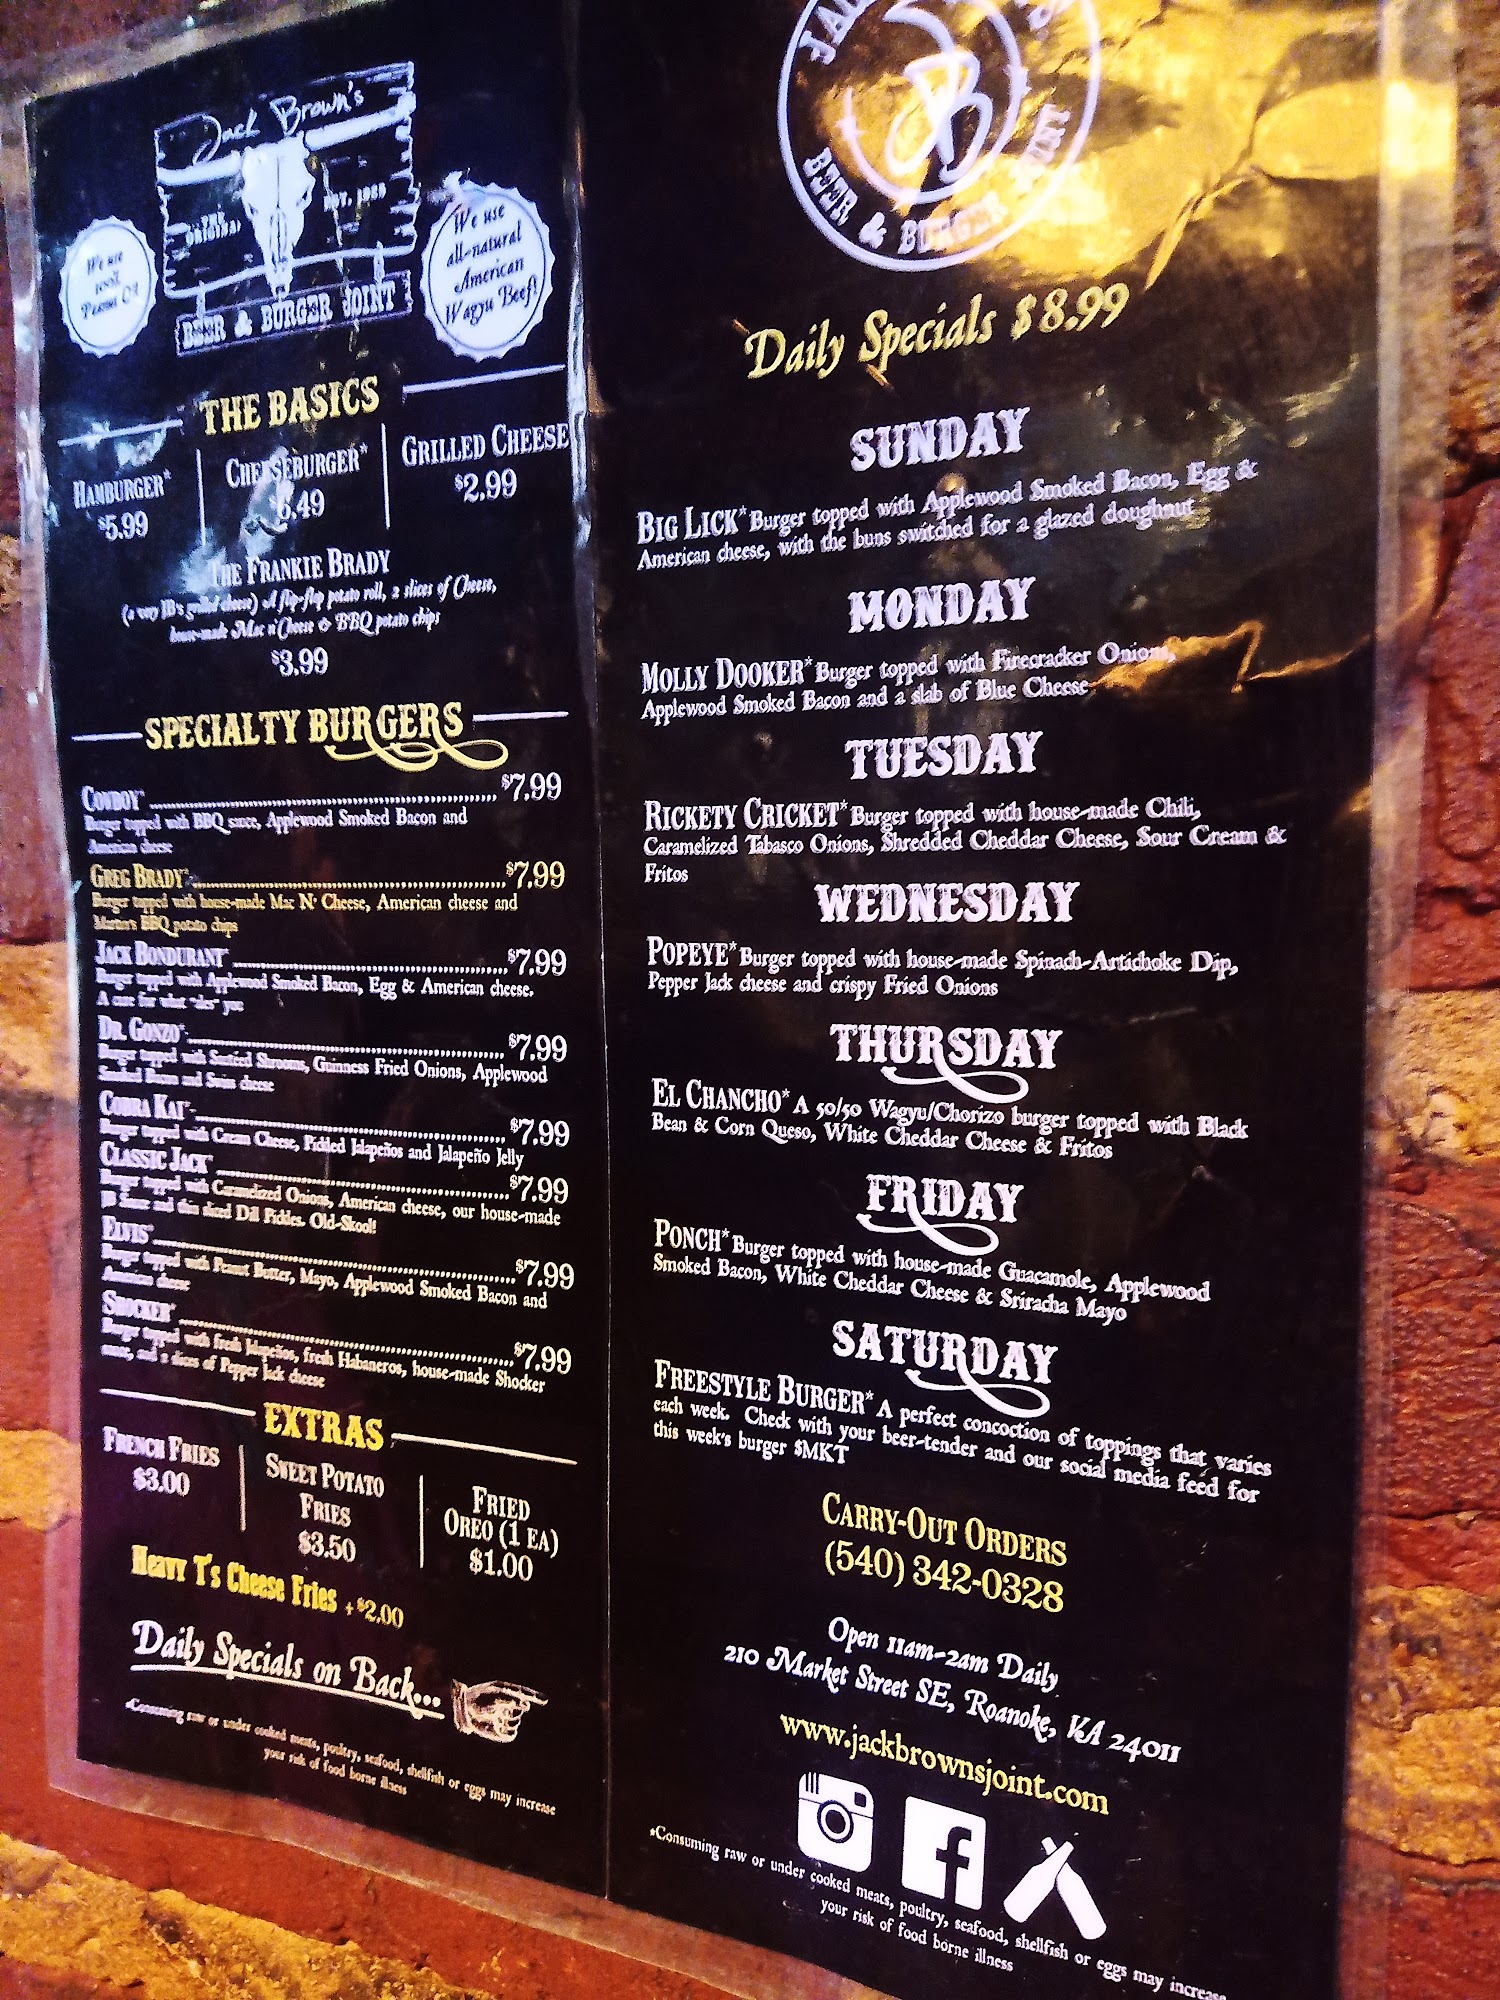 Jack Brown's
THE ORIGINAL
EST.
BEER & BURGER JOINT
We use
100%
Peanut Oil
We use
all-natural
American
Wagyu Beef!
THE BASICS
HAMBURGER*
$5.99
CHEESEBURGER*
6.49
GRILLED CHEESE
$2.99
THE FRANKIE BRADY
(a very JB's grilled cheese) A flip-flop potato roll, 2 slices of Cheese,
house-made Mac n' Cheese & BBQ potato chips
$3.99
SPECIALTY BURGERS
COWBOY* $7.99
Burger topped with BBQ sauce, Applewood Smoked Bacon and
American cheese
GREG BRADY* $7.99
Burger topped with house-made Mac N' Cheese, American cheese and
Martin's BBQ potato chips
JACK BONDURANT* $7.99
Burger topped with Applewood Smoked Bacon, Egg & American cheese.
A cure for what "ales" you
DR. GONZO* $7.99
Burger topped with Sautéed Shrooms, Guinness Fried Onions, Applewood
Smoked Bacon and Swiss cheese
COBRA KAI* $7.99
Burger topped with Cream Cheese, Pickled Jalapeños and Jalapeño Jelly
CLASSIC JACK* $7.99
Burger topped with Caramelized Onions, American cheese, our house-made
JB Sauce and thin sliced Dill Pickles. Old-Skool!
ELVIS* $7.99
Burger topped with Peanut Butter, Mayo, Applewood Smoked Bacon and
American cheese
SHOCKER* $7.99
Burger topped with fresh Jalapeños, fresh Habaneros, house-made Shocker
sauce, and 2 slices of Pepper Jack cheese
EXTRAS
FRENCH FRIES
$3.00
SWEET POTATO
FRIES
$3.50
FRIED
OREO (1 EA)
$1.00
Heavy T's Cheese Fries + $2.00
Daily Specials on Back...
*Consuming raw or under cooked meats, poultry, seafood, shellfish or eggs may increase
your risk of food borne illness
JB
BEER & BURGER JOINT
Daily Specials $8.99
SUNDAY
BIG LICK* Burger topped with Applewood Smoked Bacon, Egg &
American cheese, with the buns switched for a glazed doughnut
MONDAY
MOLLY DOOKER* Burger topped with Firecracker Onions,
Applewood Smoked Bacon and a slab of Blue Cheese
TUESDAY
RICKETY CRICKET* Burger topped with house-made Chili,
Caramelized Tabasco Onions, Shredded Cheddar Cheese, Sour Cream &
Fritos
WEDNESDAY
POPEYE* Burger topped with house-made Spinach-Artichoke Dip,
Pepper Jack cheese and crispy Fried Onions
THURSDAY
EL CHANCHO* A 50/50 Wagyu/Chorizo burger topped with Black
Bean & Corn Queso, White Cheddar Cheese & Fritos
FRIDAY
PONCH* Burger topped with house-made Guacamole, Applewood
Smoked Bacon, White Cheddar Cheese & Sriracha Mayo
SATURDAY
FREESTYLE BURGER* A perfect concoction of toppings that varies
each week. Check with your beer-tender and our social media feed for
this week's burger $MKT
CARRY-OUT ORDERS
(540) 342-0328
Open 11am-2am Daily
210 Market Street SE, Roanoke, VA 24011
www.jackbrownsjoint.com
*Consuming raw or under cooked meats, poultry, seafood, shellfish or eggs may increase
your risk of food borne illness